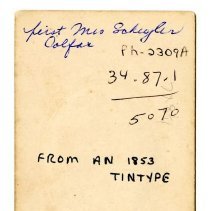 first Mrs Schuyler
Colfax
Ph-2309A
34.87.1
5070
FROM AN 1853
TINTYPE